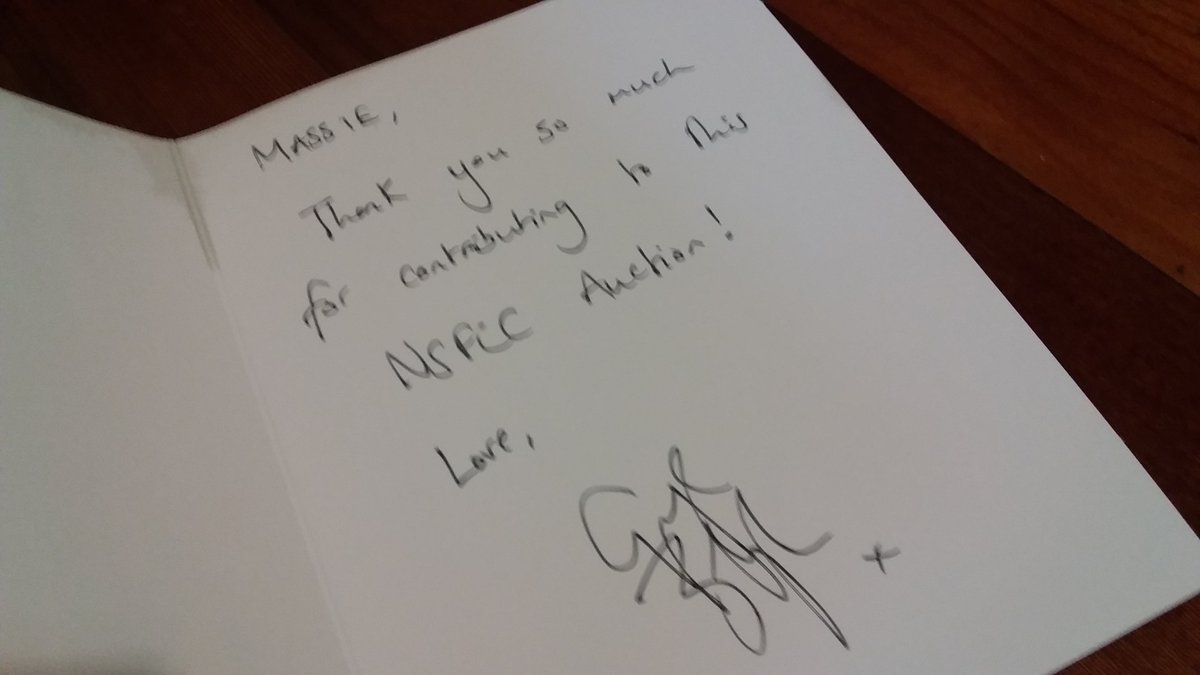 MASSIE,
Thank you so much
for contributing to this
NSFLC Auction!
Love,
+